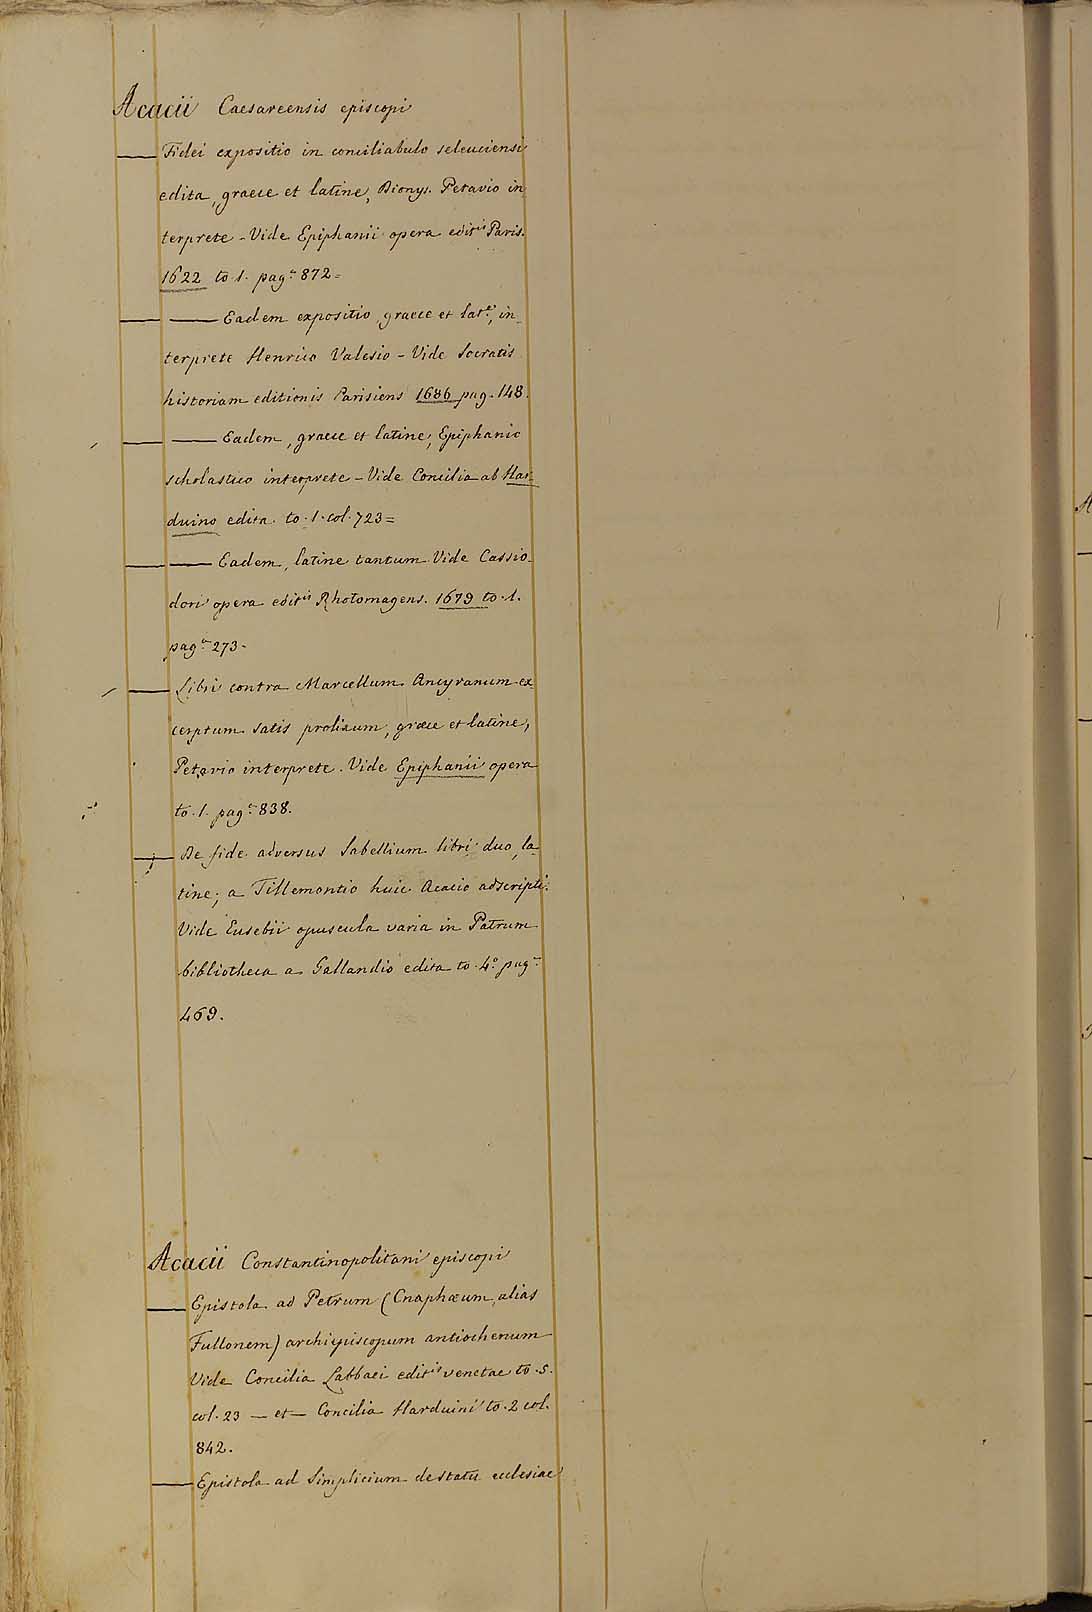 Acacii Caesareensis episcopi
— Fidei expositio in conciliabulo seleuciensi
edita, graece et latine, Dionys. Petavio in
terprete - Vide Epiphanii opera editis Paris.
1622 to. 1. pag.a 872 =
— — Eadem expositio, graece et lat.e, in_
terprete Henrico Valesio - Vide Socratis
historiam editionis Parisiens 1686 pag. 148.
— — Eadem, graece et latine, Epiphanio
scholastico interprete - Vide Concilia ab Har=
duino edita. to. 1. col. 723 =
— — Eadem, latine tantum. Vide Cassio_
dori opera editis Rhotomagens. 1679 to. 1.
pag.a 273.
— Libri contra Marcellum Ancyranum ex
cerptum satis prolixum, græce et latine,
Petavio interprete. Vide Epiphanii opera
to. 1. pag.a 838.
— De fide adversus Sabellium libri duo, la_
tine; a Tillemontio huic Acacio adscripti.
Vide Eusebii opuscula varia in Patrum
bibliotheca a Gallandio edita to. 4.o pag.a
469.
Acacii Constantinopolitani episcopi
— Epistola ad Petrum (Cnaphæum, alias
Fullonem) archiepiscopum antiochenum
Vide Concilia Labbaei editis venetae to. 5.
col. 23 — et — Concilia Harduini to. 2 col.
842.
— Epistola ad Simplicium de statu ecclesiae